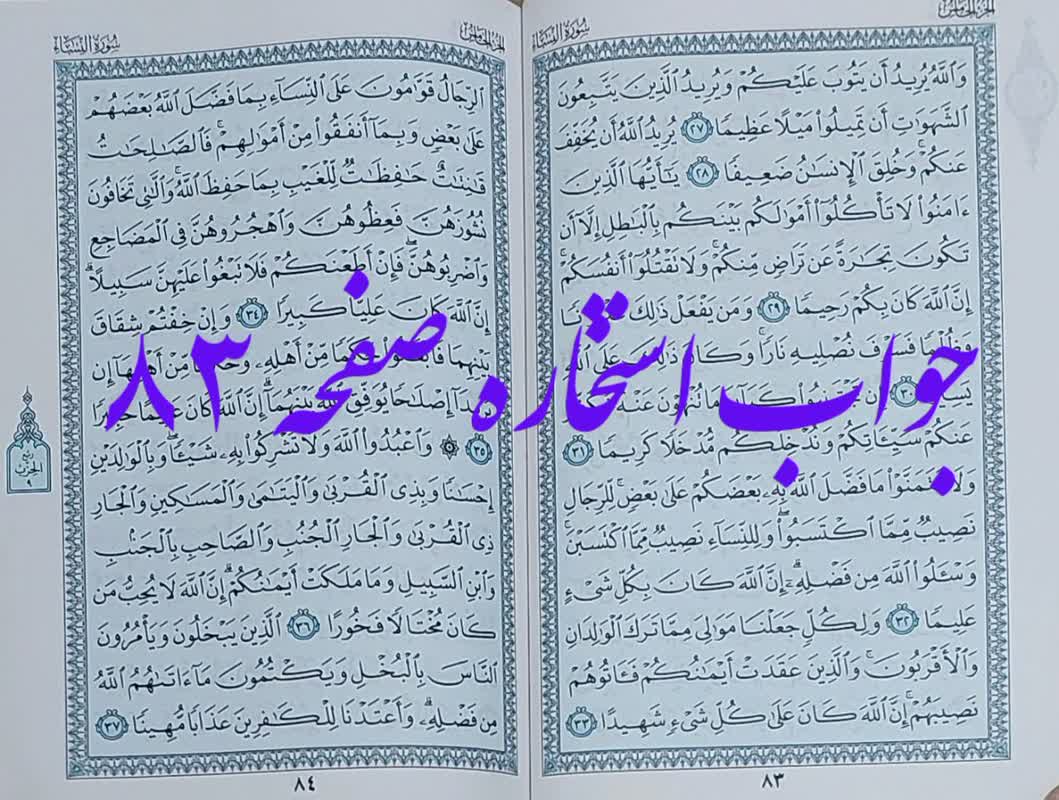 الجزء الخامس
سورة النساء
وَٱللَّهُ يُرِيدُ أَن يَتُوبَ عَلَيْكُمْ وَيُرِيدُ ٱلَّذِينَ يَتَّبِعُونَ
ٱلشَّهَوَٰتِ أَن تَمِيلُوا۟ مَيْلًا عَظِيمًا ٢٧ يُرِيدُ ٱللَّهُ أَن يُخَفِّفَ
عَنكُمْ ۚ وَخُلِقَ ٱلْإِنسَٰنُ ضَعِيفًا ٢٨ يَٰٓأَيُّهَا ٱلَّذِينَ
ءَامَنُوا۟ لَا تَأْكُلُوٓا۟ أَمْوَٰلَكُم بَيْنَكُم بِٱلْبَٰطِلِ إِلَّآ أَن
تَكُونَ تِجَٰرَةً عَن تَرَاضٍ مِّنكُمْ ۚ وَلَا تَقْتُلُوٓا۟ أَنفُسَكُمْ ۚ
إِنَّ ٱللَّهَ كَانَ بِكُمْ رَحِيمًا ٢٩ وَمَن يَفْعَلْ ذَٰلِكَ
فَسَوْفَ نُصْلِيهِ نَارًا ۚ وَكَانَ ذَٰلِكَ عَلَى ٱللَّهِ
٣٠ عَنْهُ
عَنكُمْ سَيِّـَٔاتِكُمْ وَنُدْخِلْكُم مُّدْخَلًا كَرِيمًا ٣١
وَلَا تَتَمَنَّوْا۟ مَا فَضَّلَ ٱللَّهُ بِهِۦ بَعْضَكُمْ عَلَىٰ بَعْضٍ ۚ لِّلرِّجَالِ
نَصِيبٌ مِّمَّا ٱكْتَسَبُوا۟ ۖ وَلِلنِّسَآءِ نَصِيبٌ مِّمَّا ٱكْتَسَبْنَ ۚ
وَسْـَٔلُوا۟ ٱللَّهَ مِن فَضْلِهِۦٓ ۗ إِنَّ ٱللَّهَ كَانَ بِكُلِّ شَىْءٍ
عَلِيمًا ٣٢ وَلِكُلٍّ جَعَلْنَا مَوَٰلِىَ مِمَّا تَرَكَ ٱلْوَٰلِدَانِ
وَٱلْأَقْرَبُونَ ۚ وَٱلَّذِينَ عَقَدَتْ أَيْمَٰنُكُمْ فَـَٔاتُوهُمْ
نَصِيبَهُمْ ۚ إِنَّ ٱللَّهَ كَانَ عَلَىٰ كُلِّ شَىْءٍ شَهِيدًا ٣٣
٨٣
الجزء الخامس
سورة النساء
ٱلرِّجَالُ قَوَّٰمُونَ عَلَى ٱلنِّسَآءِ بِمَا فَضَّلَ ٱللَّهُ بَعْضَهُمْ
عَلَىٰ بَعْضٍ وَبِمَآ أَنفَقُوا۟ مِنْ أَمْوَٰلِهِمْ ۚ فَٱلصَّٰلِحَٰتُ
قَٰنِتَٰتٌ حَٰفِظَٰتٌ لِّلْغَيْبِ بِمَا حَفِظَ ٱللَّهُ ۚ وَٱلَّٰتِى تَخَافُونَ
نُشُوزَهُنَّ فَعِظُوهُنَّ وَٱهْجُرُوهُنَّ فِى ٱلْمَضَاجِعِ
وَٱضْرِبُوهُنَّ ۖ فَإِنْ أَطَعْنَكُمْ فَلَا تَبْغُوا۟ عَلَيْهِنَّ سَبِيلًا ۗ
إِنَّ ٱللَّهَ كَانَ عَلِيًّا كَبِيرًا ٣٤ وَإِنْ خِفْتُمْ شِقَاقَ
بَيْنِهِمَا مِّنْ أَهْلِهِۦ وَحَكَمًا مِّنْ أَهْلِهَآ إِن
إِصْلَٰحًا يُوَفِّقِ ٱللَّهُ بَيْنَهُمَآ ۗ إِنَّ ٱللَّهَ كَانَ عَلِيمًا خَبِيرًا
٣٥ وَٱعْبُدُوا۟ ٱللَّهَ وَلَا تُشْرِكُوا۟ بِهِۦ شَيْـًٔا ۖ وَبِٱلْوَٰلِدَيْنِ
إِحْسَٰنًا وَبِذِى ٱلْقُرْبَىٰ وَٱلْيَتَٰمَىٰ وَٱلْمَسَٰكِينِ وَٱلْجَارِ
ذِى ٱلْقُرْبَىٰ وَٱلْجَارِ ٱلْجُنُبِ وَٱلصَّاحِبِ بِٱلْجَنۢبِ
وَٱبْنِ ٱلسَّبِيلِ وَمَا مَلَكَتْ أَيْمَٰنُكُمْ ۗ إِنَّ ٱللَّهَ لَا يُحِبُّ مَن
كَانَ مُخْتَالًا فَخُورًا ٣٦ ٱلَّذِينَ يَبْخَلُونَ وَيَأْمُرُونَ
ٱلنَّاسَ بِٱلْبُخْلِ وَيَكْتُمُونَ مَآ ءَاتَىٰهُمُ ٱللَّهُ
مِن فَضْلِهِۦ ۗ وَأَعْتَدْنَا لِلْكَٰفِرِينَ عَذَابًا مُّهِينًا ٣٧
٨٤
ربع
الحزب
٩
جواب استخاره صفحه ٨٣